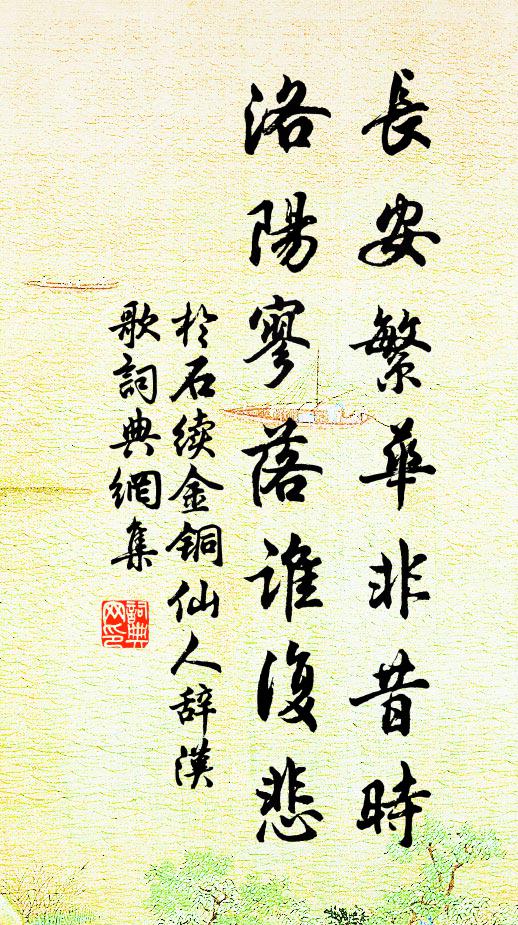 長安繁華非昔時
洛陽寥落誰復悲
於石续金铜仙人辞漢
歌詞典網集
詞典网印